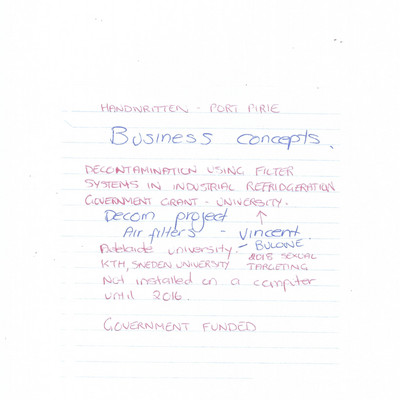 HANDWRITTEN - PORT PIRIE
Business concepts.
DECONTAMINATION USING FILTER
SYSTEMS IN INDUSTRIAL REFRIDGERATION
GOVERNMENT GRANT - UNIVERSITY.
Decom project ↑
Air filters - Vincent
Adelaide university. - BULONE
KTH, SWEDEN UNIVERSITY 2018 SEXUAL
TARGETING
Not installed on a computer
until 2016.
GOVERNMENT FUNDED